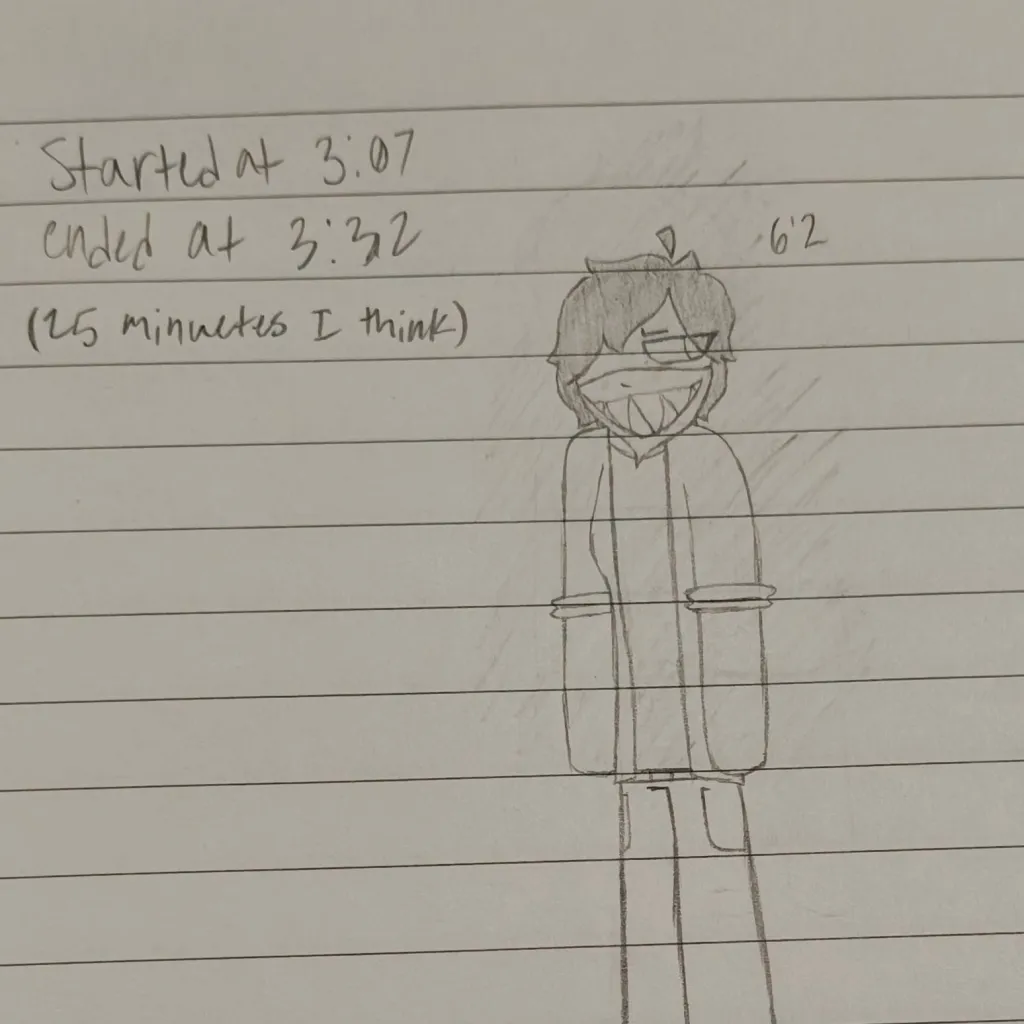 Started at 3:07
ended at 3:32
6'2
(25 minuetes I think)